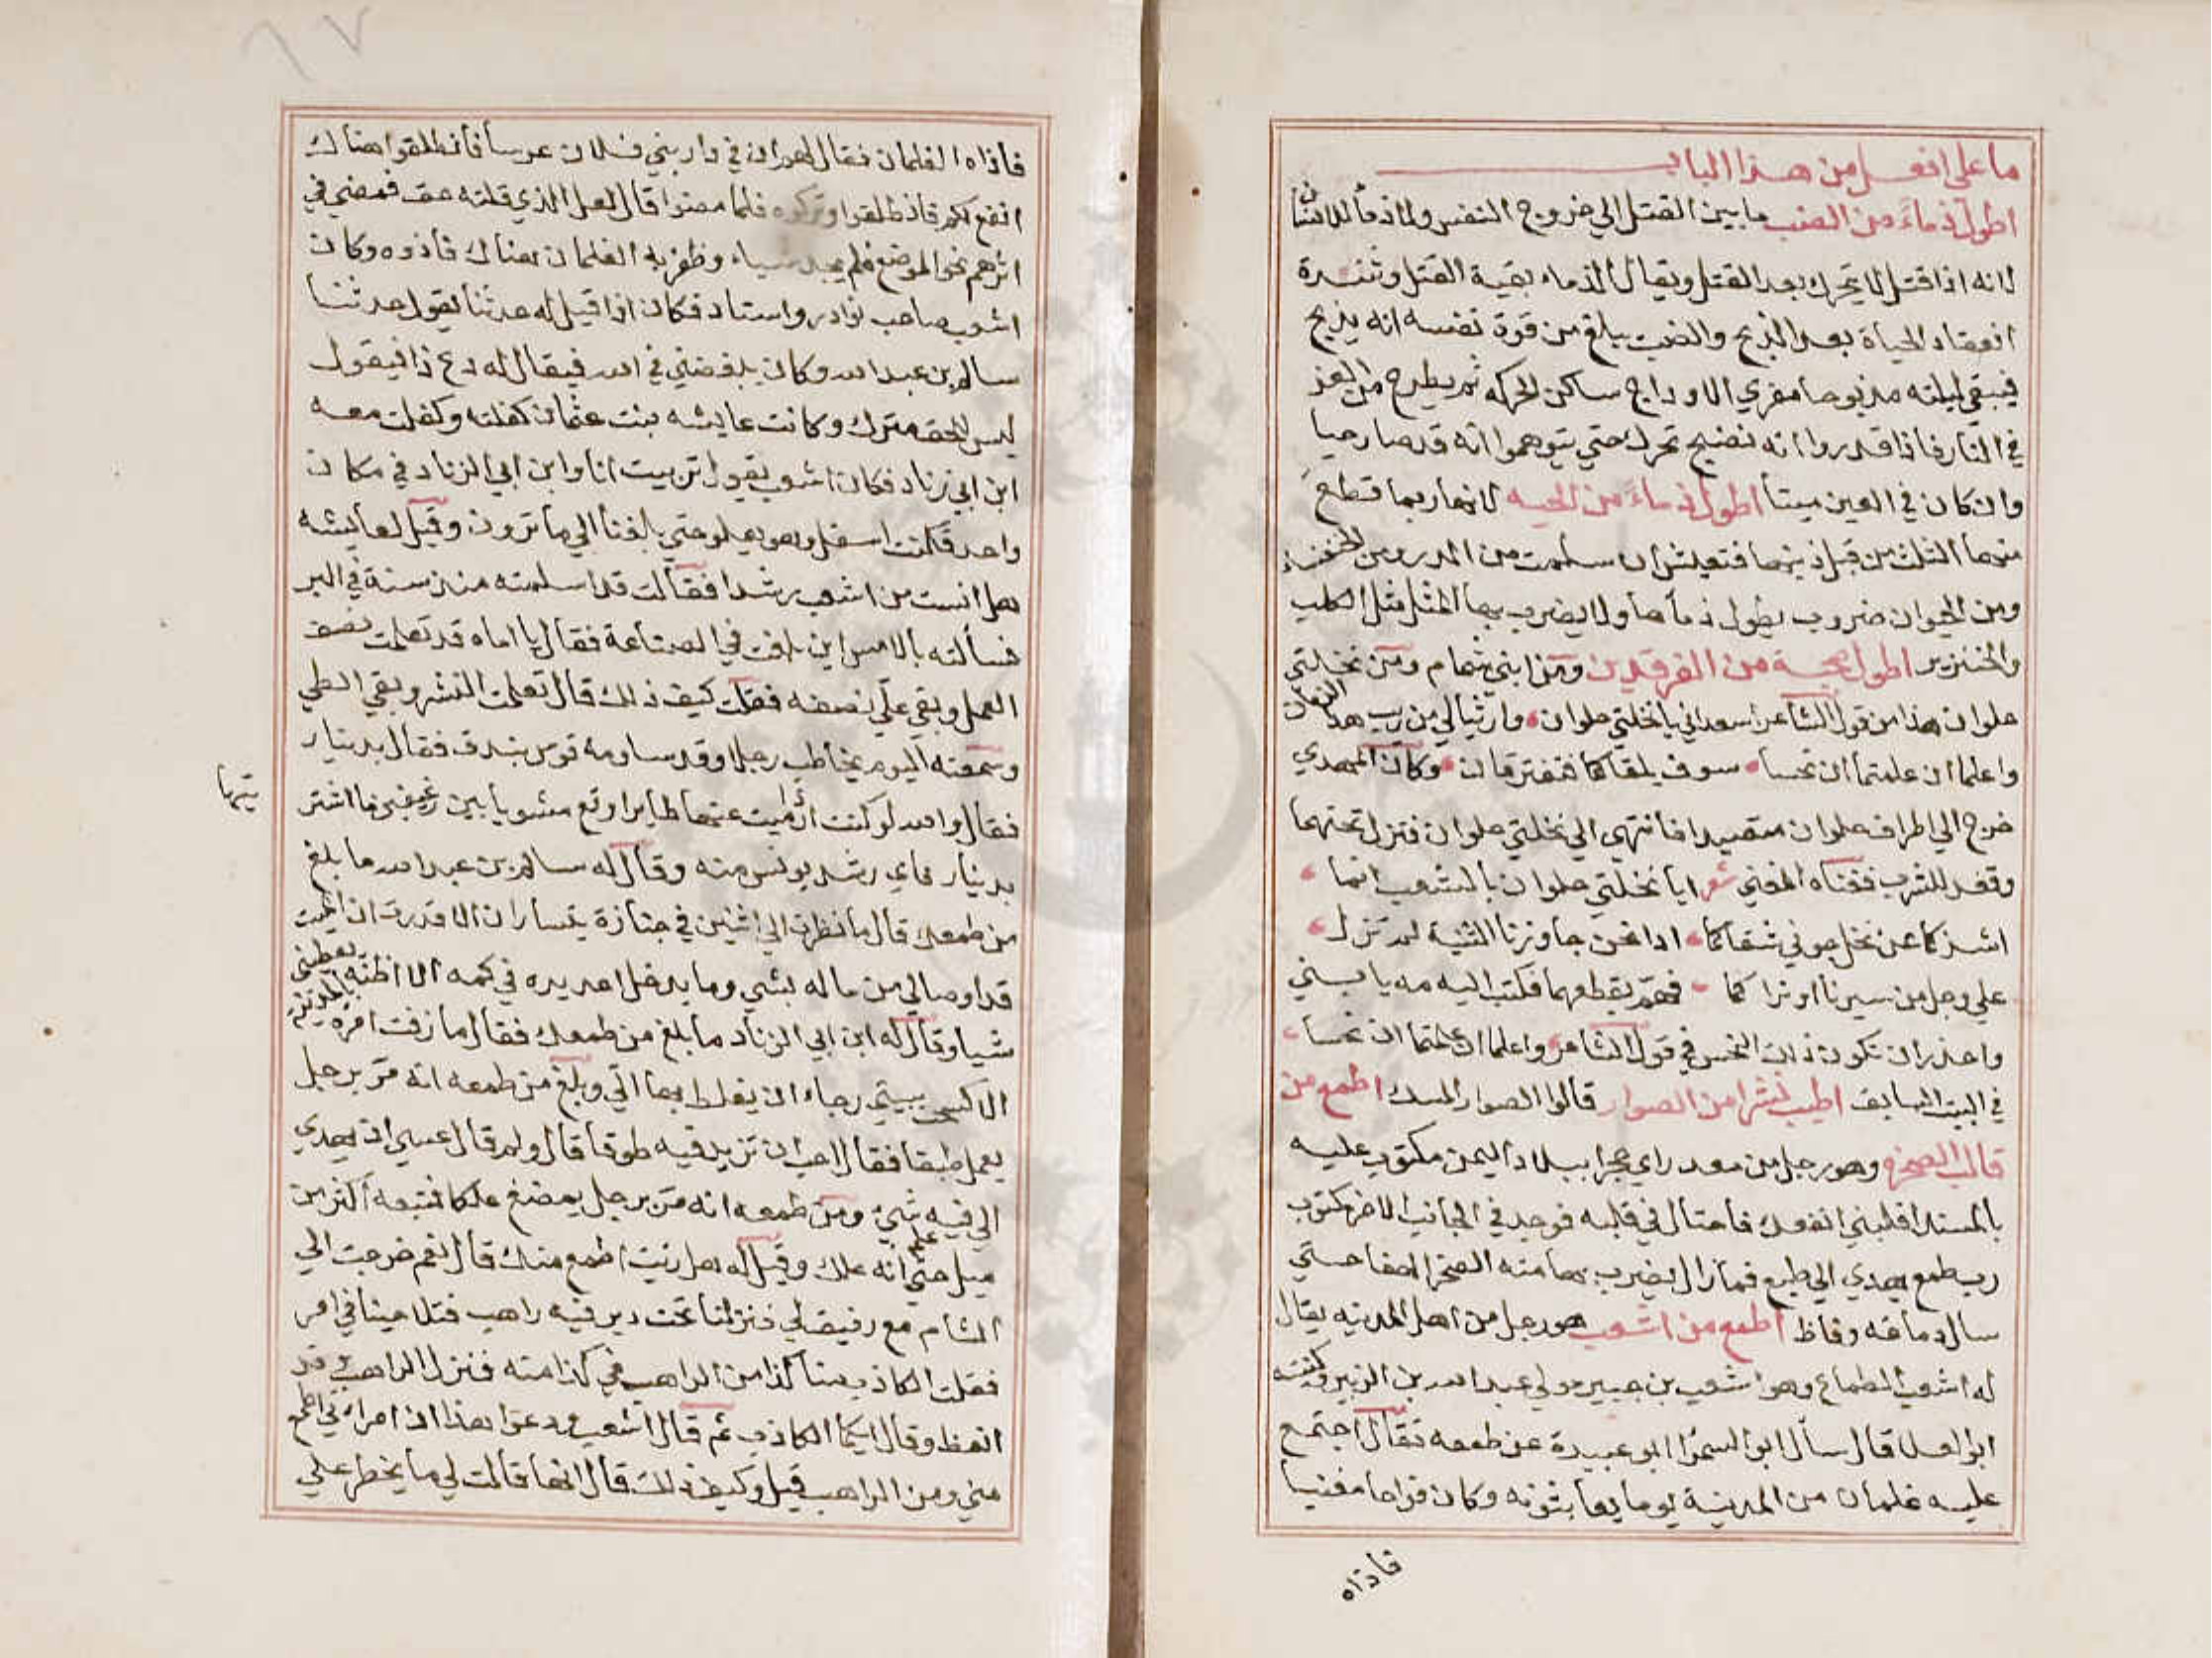 ما على افعل من هذا الباب
اطول ذماءً من الضب ما بين القتل الي خروج النفس ولا ذماً للانسان
لانه اذا قتل لا يتحرك بعد القتل ويقال الذماء بقية القتل وشدة
انعقاد الحياة بعد الذبح والضب يبلغ من قوة نفسه انه يذبح
فيبقي ليلته مذبوحا مفري الاوداج ساكن الحركه ثم يطرح من الغد
في النار فاذا قدروا انه نضيج تحرك حتي يتوهموا انه قد صار حيا
وان كان في العين ميتا اطول ذماءً من الحيه لانها ربما قطع
منها الثلث من قبل ذنبها فتعيش ان سلمت من الذر ومن الخنفساء
ومن الحيوان ضروب يطول ذماها ولا يضرب بها المثل مثل الكلب
والخنزير اطول صحبة من الفرقدين ومن ابني شمام ومن نخلتي
حلوان هذا من قول الشاعر اسعداني يا نخلتي حلوان وارثيا لي من ريب هذا الزمان
واعلما ان علمتما ان نحسا سوف يلقاكما فتفترقان وكان المهدي
خرج الي اطراف حلوان متصيدا فانتهي الي نخلتي حلوان فنزل تحتهما
وقعد للشرب فغناه المغني شعر ايا نخلتي حلوان بالشعب انما
اشذكما عن نخل جوني شقاكما اذا نحن جاوزنا الثنية لم نزل
علي وجل من سيرنا او نراكما فهمّ بقطعهما فكتب اليه مه يا بني
واحذر ان تكون ذلك النحس في قول الشاعر واعلما ان علمتما ان نحسا
في البيت السابق اطيب نشرا من الصوار قالوا الصوار المسك اطمع من
قالب الصخرة وهو رجل من معد راي حجرا ببلاد اليمن مكتوب عليه
بالمسند اقلبني انفعك فاحتال في قلبه فوجد في الجانب الاخر مكتوب
رب طمع يهدي الي طبع فما زال يضرب بهامته الصخر الصفا حتي
سال دماغه وفاظ اطمع من اشعب هو رجل من اهل المدينه يقال
له اشعب الطماع وهو اشعب بن جبير مولي عبد الله بن الزبير وكنيته
ابو العلا قال سأل ابو السمرا ابو عبيدة عن طمعه فقال اجتمع
عليه غلمان من المدينة يوما يعابثونه وكان مزاحا مغنيا
فاذاه
فأذاه الغلمان فقال لهم ان في دار بني فلان عرسا فانطلقوا هناك
انفع لكم فانطلقوا وتركوه فلما مضوا قال لعل الذي قلته حق فمضي في
اثرهم نحو الموضع فلم يجد شياء وظفر به الغلمان هناك فأذوه وكان
اشعب صاحب نوادر واسناد فكان اذا قيل له حدثنا يقول حدثنا
سالم بن عبد الله وكان يبغضني في الله فيقال له دع ذا فيقول
ليس للحق مترك وكانت عايشه بنت عثمان كفلته وكفلت معه
ابن ابي زناد فكان اشعب يقول تربيت انا وابن ابي الزناد في مكان
واحد فكنت اسفل وهو يعلو حتي بلغنا الي ما ترون وقيل لعايشه
هل انست من اشعب رشدا فقالت قد اسلمته منذ سنة في البر
فسألته بالامس اين بلغت في الصناعة فقال يا اماه قد تعلمت نصف
العمل وبقي علي نصفه فقلت كيف ذلك قال تعلمت النشر وبقي الطي
وسمعته اليوم يخاطب رجلا وقد ساومه قوس بندق فقال بدينار
فقال والله لو كنت اذا رميت عنها طايرا وقع مشويا بين رغيفين ما اشتر
يتها
بدينار فاي رشد يونس منه وقال له سالم بن عبد الله ما بلغ
من طمعك قال ما نظرت الي اثنين في جنازة يتساران الا قدرت ان الميت
قد اوصالي من ماله بشي وما يدخل احد يده في كمه الا اظنه يعطيني
شيا وقال له ابن ابي الزناد ما بلغ من طمعك فقال ما زفت امرة بالمدينة
الا كسحت بيتي رجاء ان يغلط بها الي وبلغ من طمعه انه مر برجل
يعمل طبقا فقال احب ان تزيد فيه طوقا قال ولم قال عسي ان يهدي
الي فيه شي ومن طمعه انه مر برجل يمضغ علكا فتبعه اكثر من
ميل حتي علم انه علك وقيل له هل رئيت اطمع منك قال نعم خرجت الي
الشام مع رفيق لي فنزلنا تحت دير فيه راهب فتلاحينا في امر
فقلت الكاذب منا كذا من الراهب في كذا منه فنزل الراهب وقد
انعظ وقال ايكما الكاذب ثم قال اشعب ودعوا هذا ان امرأتي اطمع
مني ومن الراهب قيل وكيف ذلك قال انها قالت لي ما يخطر علي